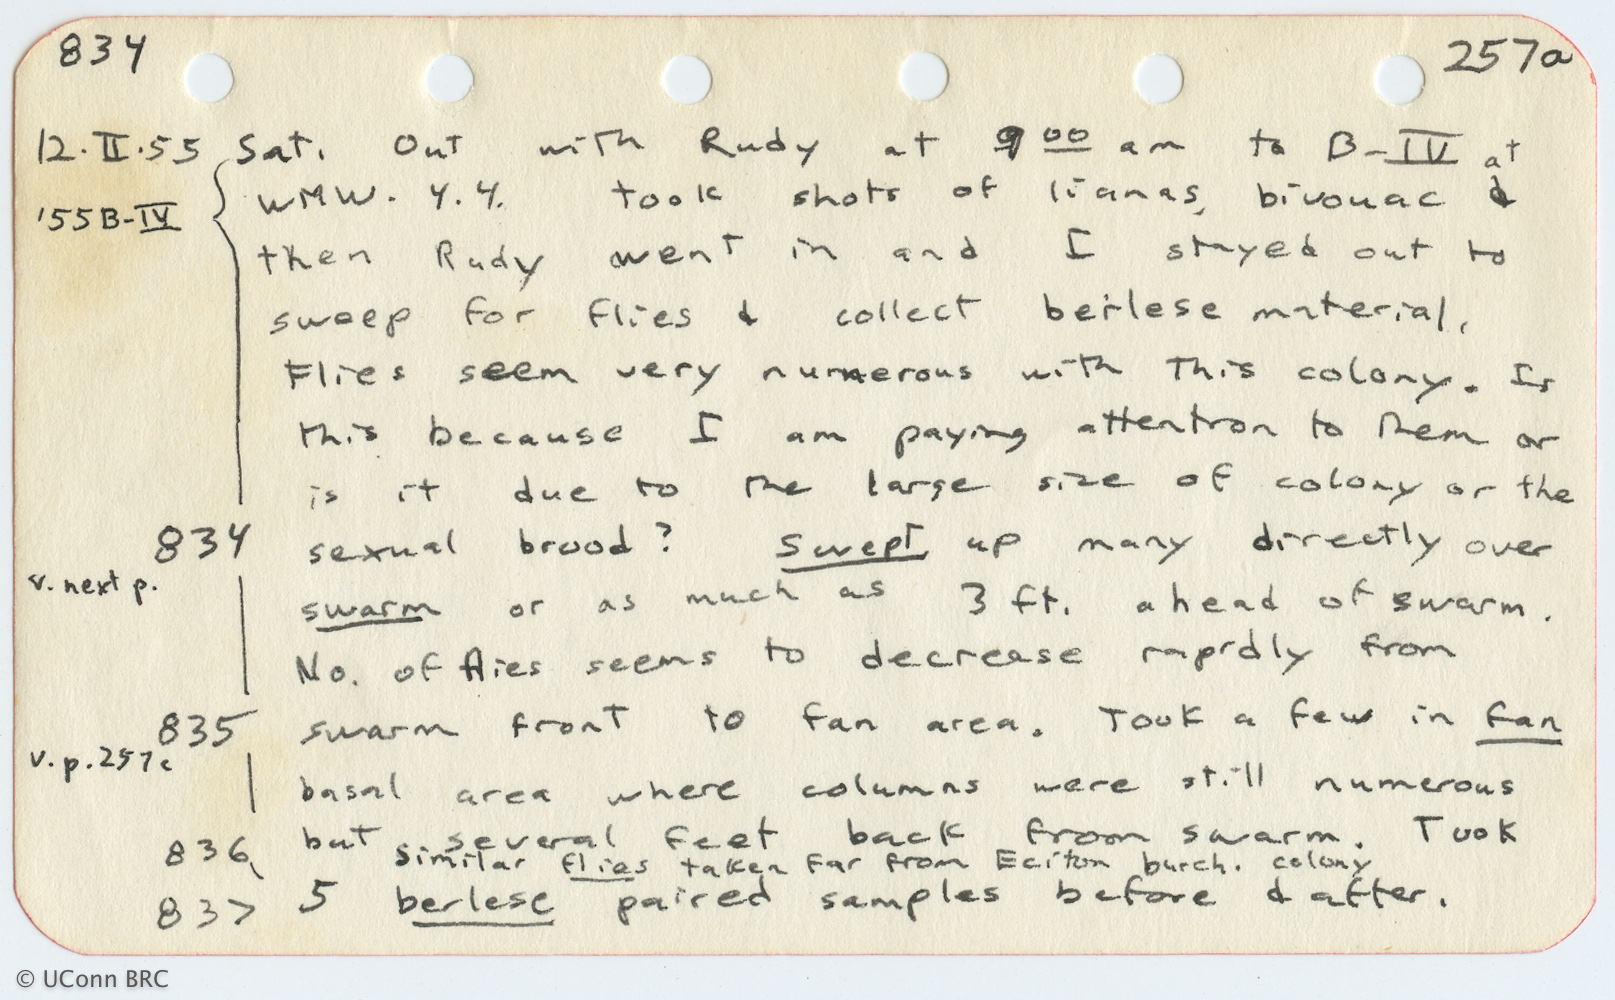 834 257a
12.II.55 Sat. Out with Rudy at 9 00 am to B-IV at
'55 B-IV WMW. 4.4. Took shots of lianas, bivouac &
then Rudy went in and I stayed out to
sweep for flies & collect berlese material.
Flies seem very numerous with this colony. Is
this because I am paying attention to them or
is it due to the large size of colony or the
834 sexual brood? Swept up many directly over
v. next p. swarm or as much as 3 ft. ahead of swarm.
No. of flies seems to decrease rapidly from
835 swarm front to fan area. Took a few in fan
v. p. 257c basal area where columns were still numerous
but several feet back from swarm. Took
836 similar flies taken far from Eciton burch. colony
837 5 berlese paired samples before & after.
© UConn BRC